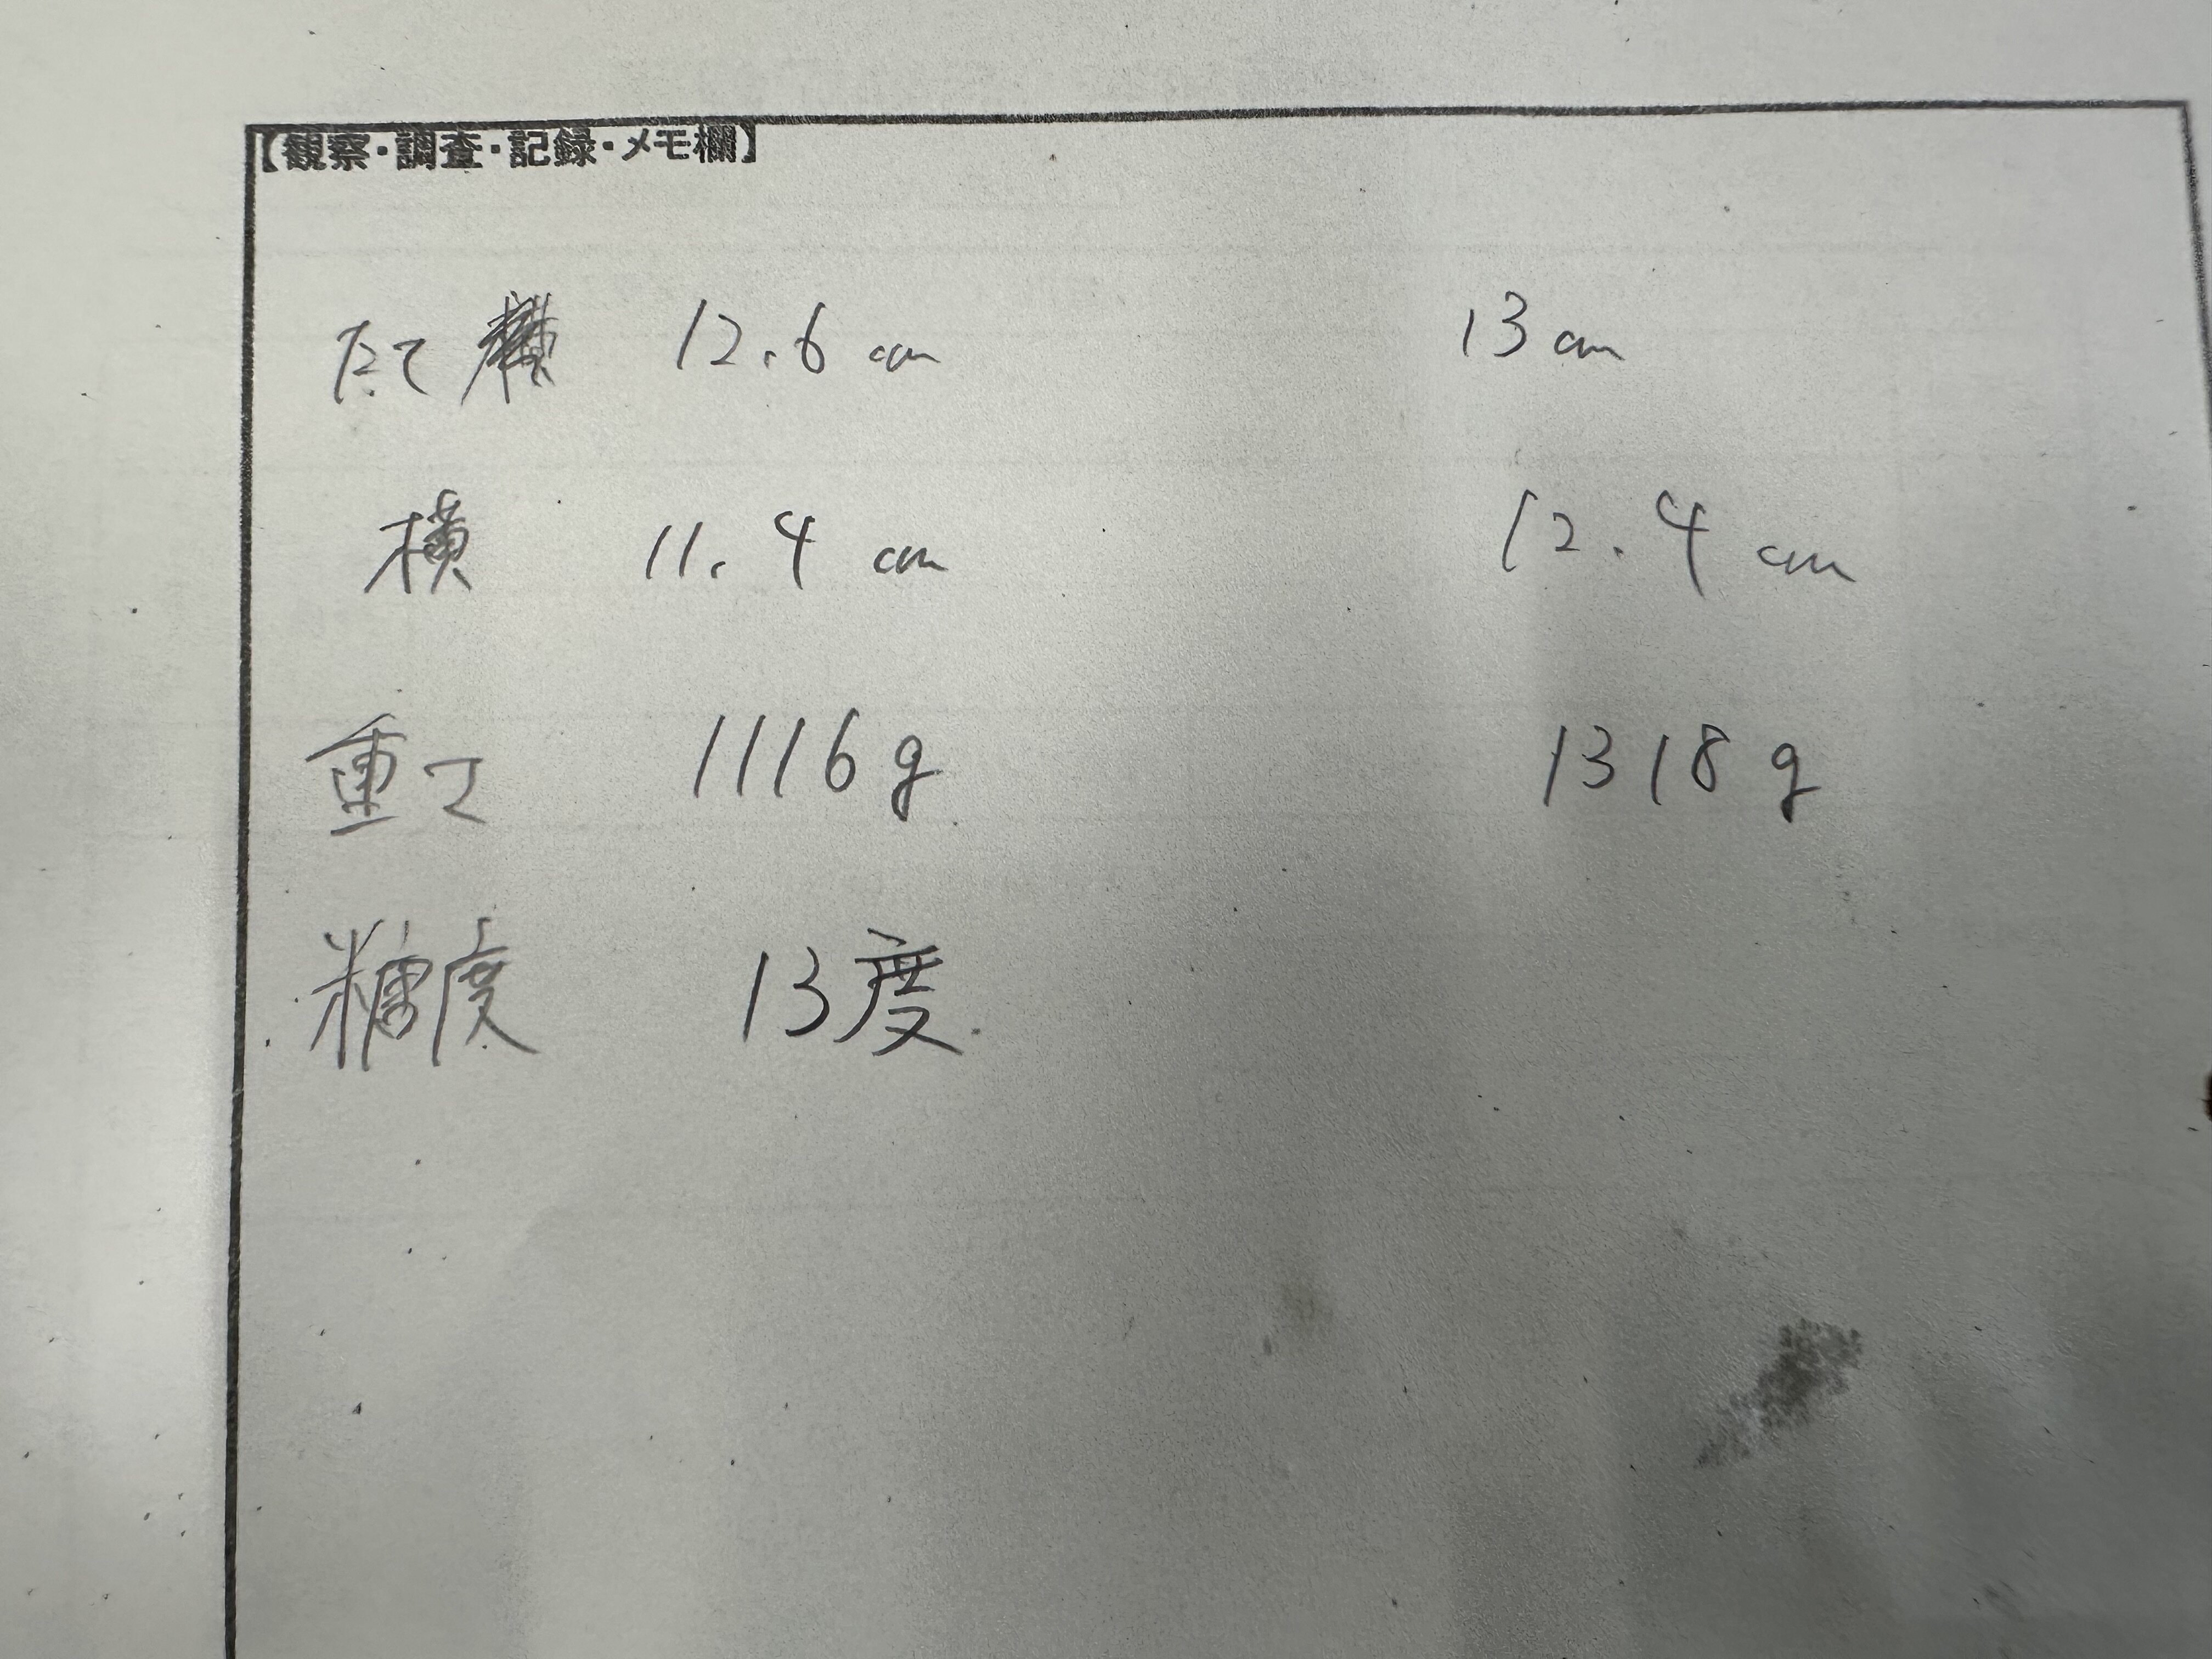 【観察・調査・記録・メモ欄】
たて 12.6 cm 13 cm
横 11.4 cm 12.4 cm
重さ 1116 g 1318 g
糖度 13度